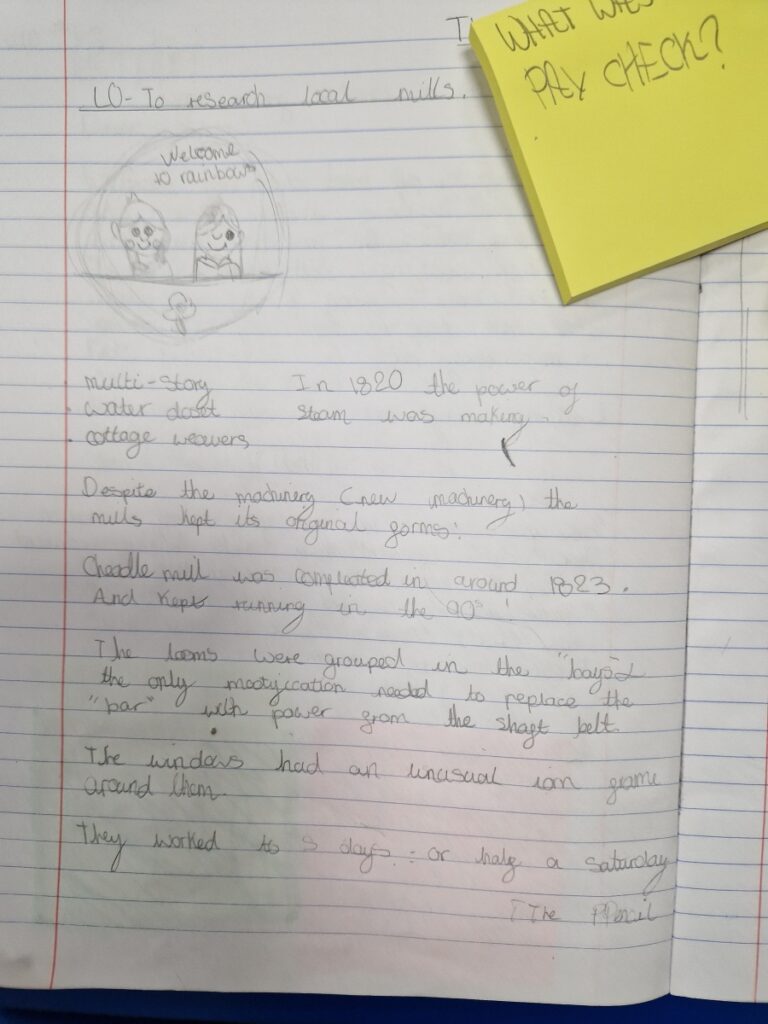 WHAT WAS
PAY CHECK?
LO-To research local mills.
Welcome
to rainbows
multi-story
water closet
cottage weavers
In 1820 the power of
steam was making
Despite the machinery (new machinery) the
mills kept its original forms.
Cheadle mill was complicated in around 1823.
And kept running in the 90s
The looms were grouped in the "bays"
the only modification needed to replace the
"bar" with power from the shaft belt.
The windows had an unusual iron frame
around them.
They worked to 5 days - or half a saturday
The